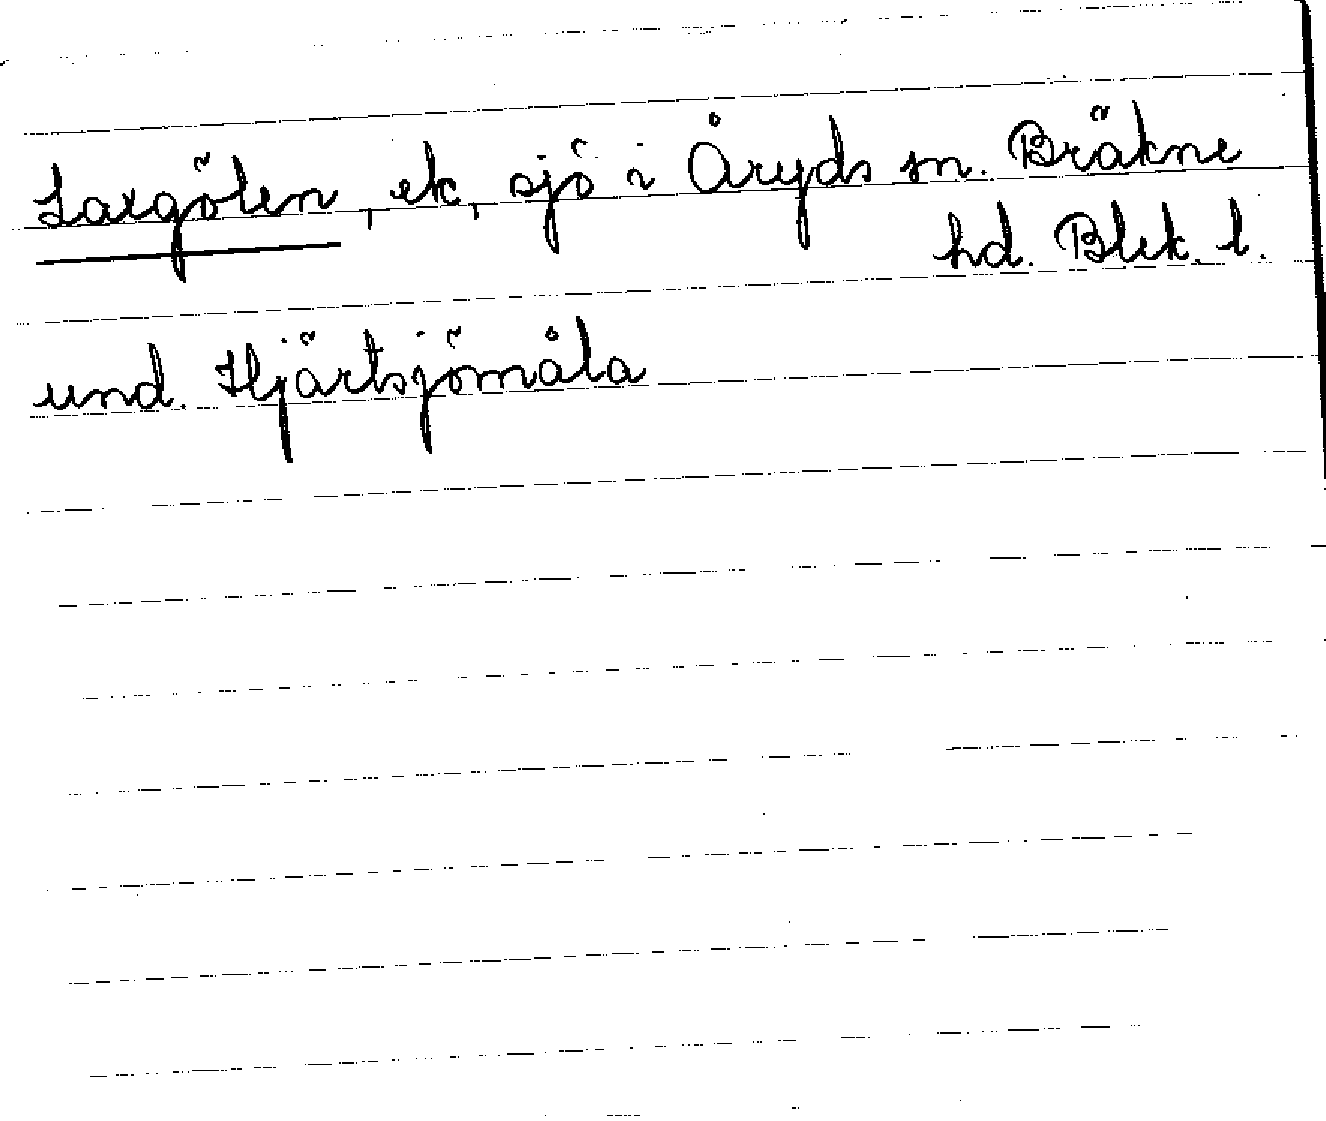 Laxgölen, ek, sjö i Åryds sn. Bräkne
hd. Blek. l.
und. Hjärtsjömåla